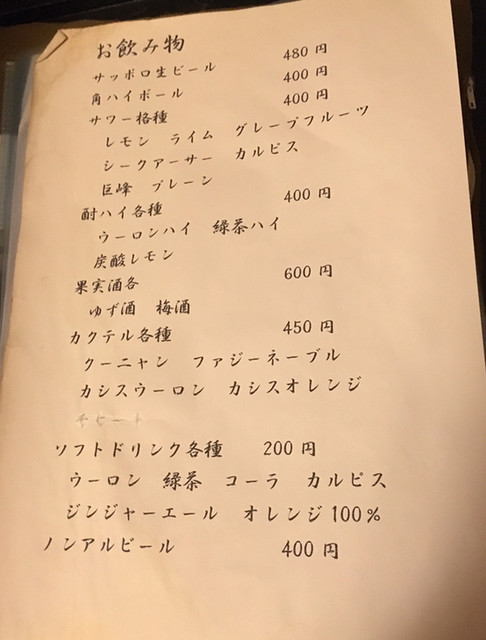 お飲み物
サッポロ生ビール 480円
角ハイボール 400円
サワー格種 400円
レモン ライム グレープフルーツ
シークアーサー カルピス
巨峰 プレーン
酎ハイ各種 400円
ウーロンハイ 緑茶ハイ
炭酸レモン
果実酒各 600円
ゆず酒 梅酒
カクテル各種 450円
クーニャン ファジーネーブル
カシスウーロン カシスオレンジ
ソフトドリンク各種 200円
ウーロン 緑茶 コーラ カルピス
ジンジャーエール オレンジ100%
ノンアルビール 400円